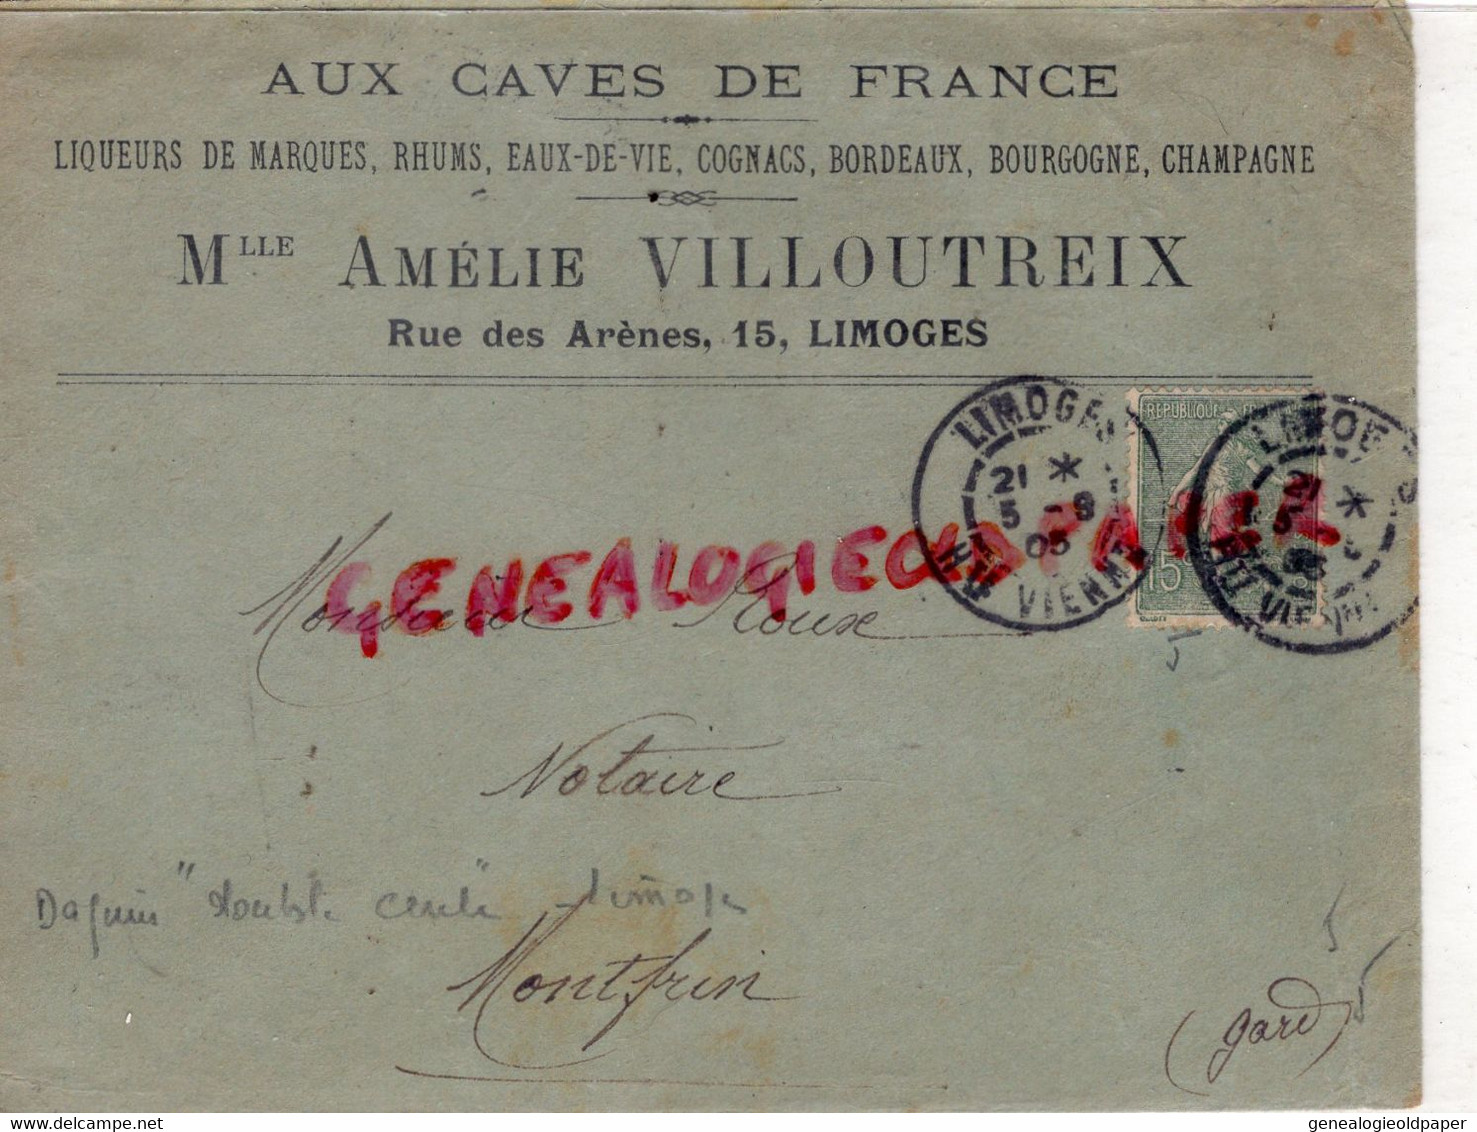 AUX CAVES DE FRANCE
LIQUEURS DE MARQUES, RHUMS, EAUX-DE-VIE, COGNACS, BORDEAUX, BOURGOGNE, CHAMPAGNE
MLLE AMÉLIE VILLOUTREIX
Rue des Arènes, 15, LIMOGES
LIMOGES
21 *
5 - 9
05
HTE VIENNE
REPUBLIQUE
15c
21 *
5
VIENNE
GENEALOGIEOLDPAPER
Monsieur Roux
Notaire
Daguin "double cercle" Limoges
Montfrin
(Gard)
genealogieoldpaper